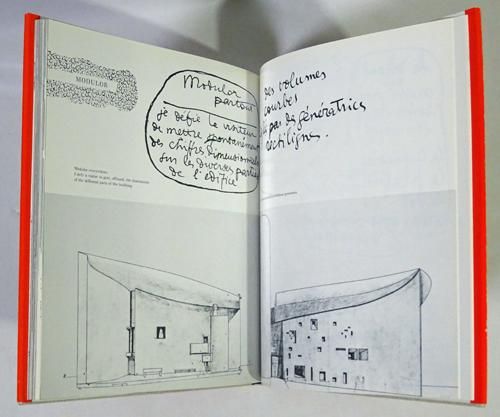 MODULOR
Modulor
partout
je défie le visiteur
de mettre spontanément
des chiffres dimensionnels
sur les diverses parties
de l'édifice
Modulor everywhere.
I defy a visitor to give, offhand, the dimensions
of the different parts of the building
des volumes
courbes
à pas de génératrices
rectilignes.